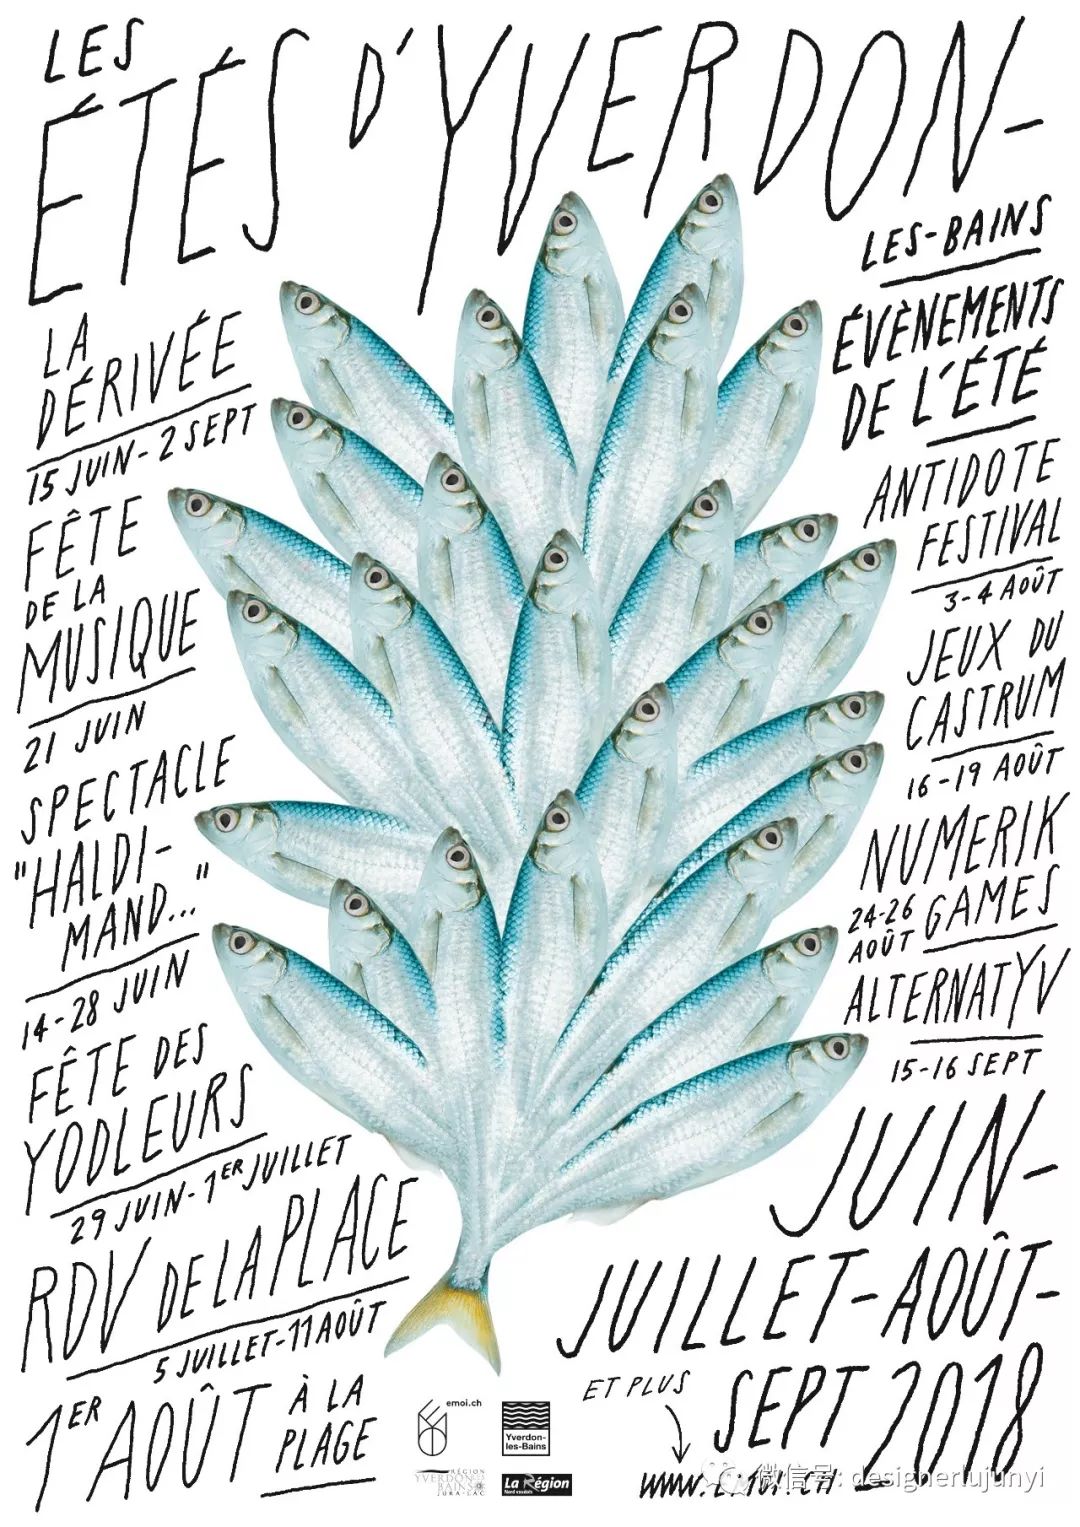 LES
ÉTÉS D'YVERDON-
LES-BAINS
ÉVÈNEMENTS
DE L'ÉTÉ
LA
DÉRIVÉE
15 JUIN-2 SEPT
FÊTE
DE LA
MUSIQUE
21 JUIN
SPECTACLE
"HALDI-
MAND..."
14-28 JUIN
FÊTE DES
YODLEURS
29 JUIN-1ER JUILLET
RDV DE LA PLACE
5 JUILLET-11 AOÛT
1ER AOÛT À LA
PLAGE
ANTIDOTE
FESTIVAL
3-4 AOÛT
JEUX DU
CASTRUM
16-19 AOÛT
NUMERIK
GAMES
24-26
AOÛT
ALTERNATYV
15-16 SEPT
JUIN-
JUILLET-AOÛT-
SEPT 2018
ET PLUS
emoi.ch
Yverdon-
les-Bains
RÉGION
YVERDON
BAINS
JURA-LAC
La Région
Nord vaudois
微信号: designerlujunyi